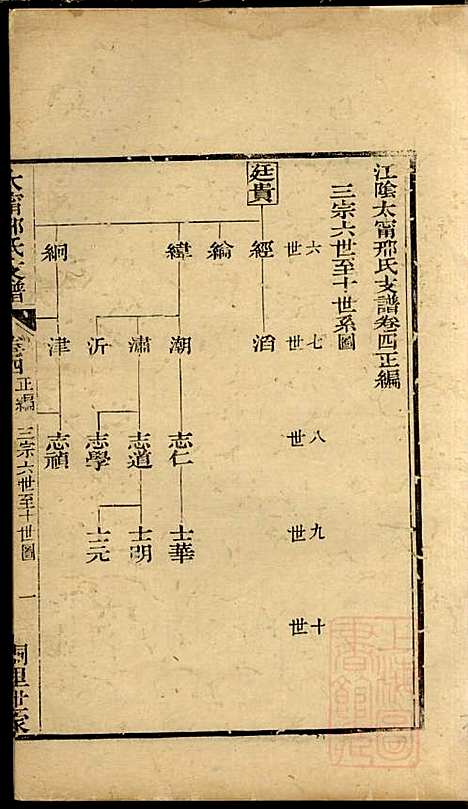 江陰太甯邢氏支譜卷四正編
三宗六世至十世系圖
六世
七世
八世
九世
十世
廷貴
經
滔
綸
緯
潮
志仁
士華
潚
志道
士明
沂
志學
士元
絅
津
志禎
太甯邢氏支譜
卷四
正編
三宗六世至十世圖
一